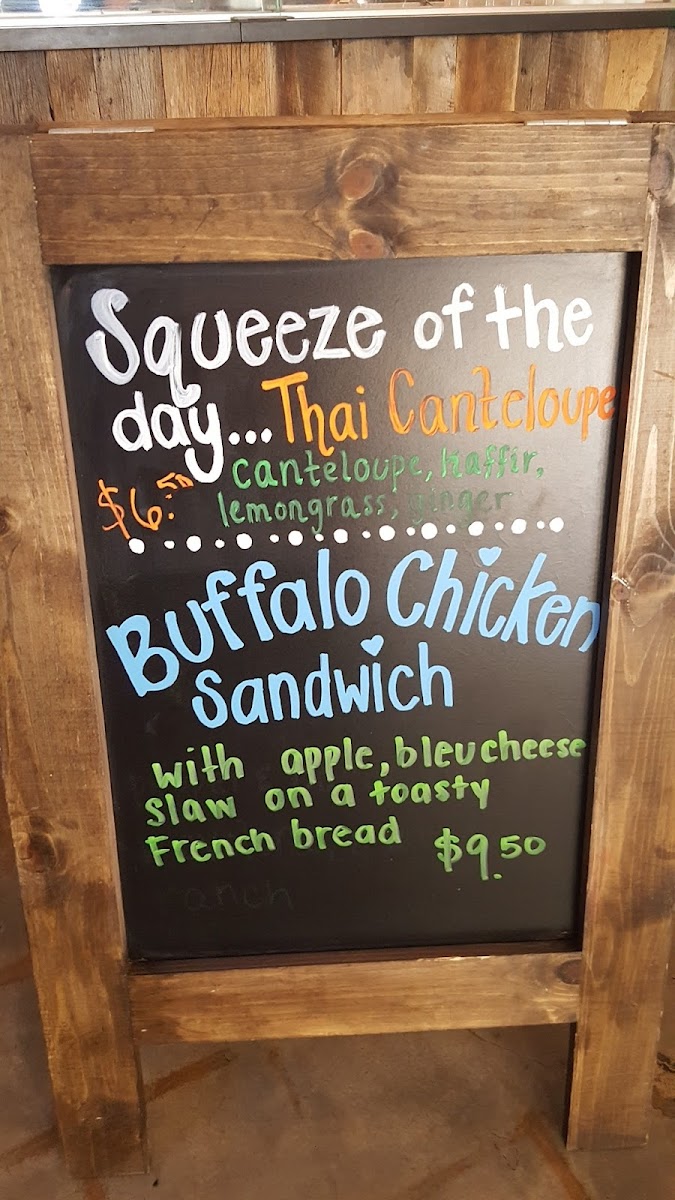 Squeeze of the
day...Thai Canteloupe
$6.50 canteloupe, kaffir,
lemongrass, ginger
Buffalo Chicken
Sandwich
with apple, bleu cheese
slaw on a toasty
French bread $9.50
ranch